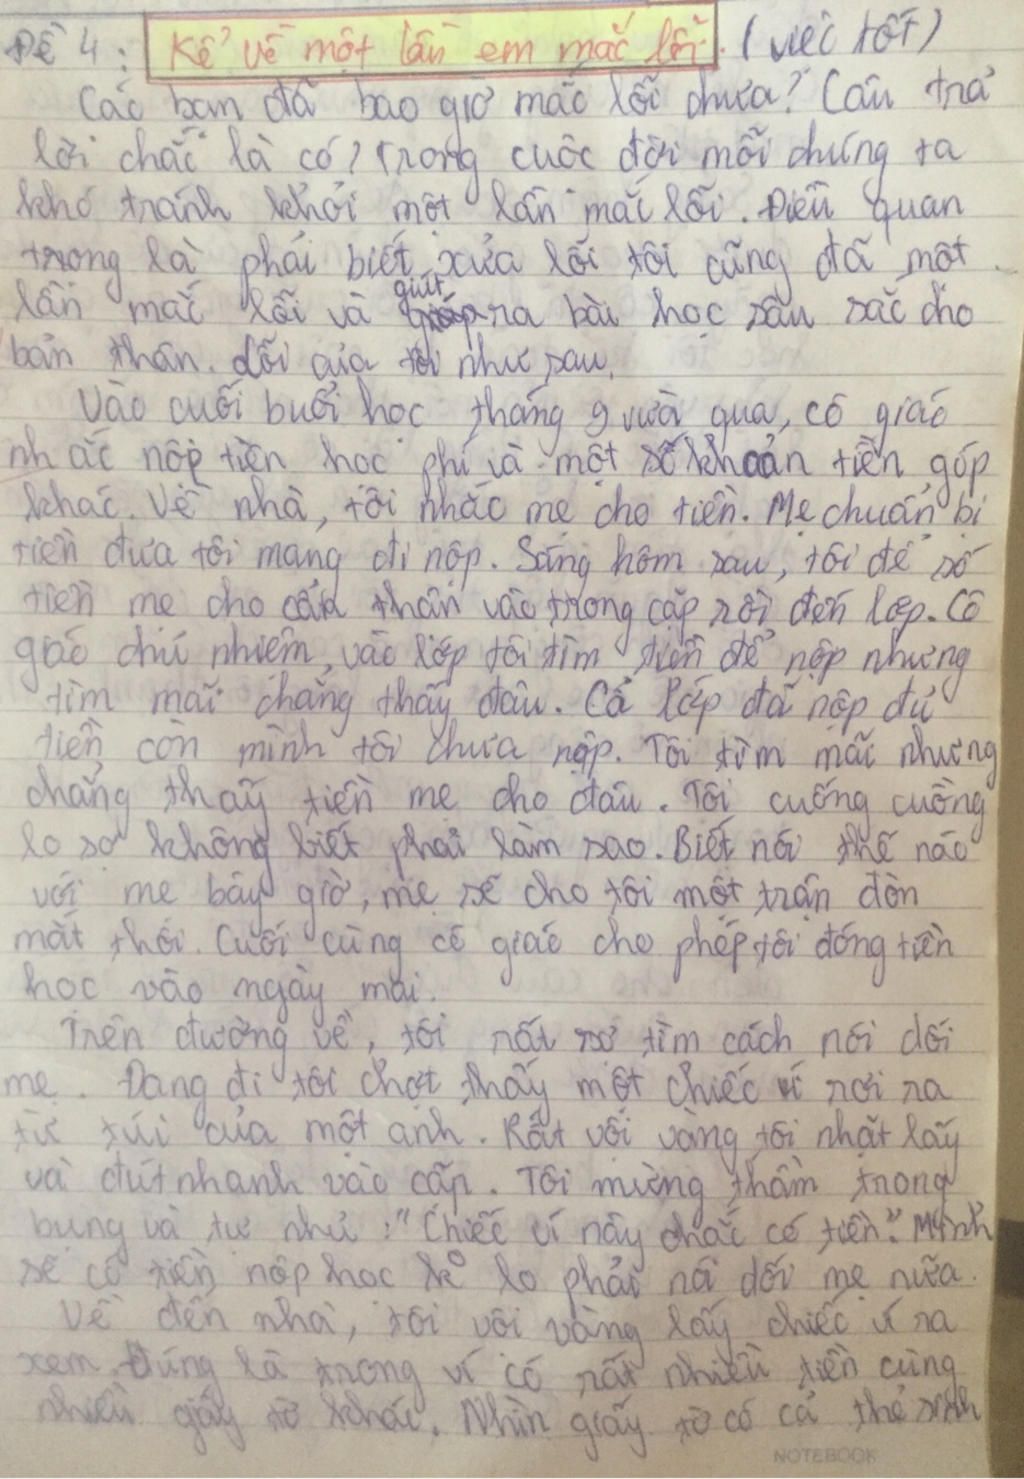 Đề 4: Kể về một lần em mắc lỗi. (việc tốt)
Các bạn đã bao giờ mắc lỗi chưa? Câu trả
lời chắc là có? Trong cuộc đời mỗi chúng ta
khó tránh khỏi một lần mắc lỗi. Điều quan
trọng là phải biết xửa lỗi tôi cũng đã một
lần mắc lỗi và giút ra bài học sâu sắc cho
bản thân. Lỗi của tôi như sau.
Vào cuối buổi học tháng 9 vừa qua, cô giáo
nhắc nộp tiền học phí và một số khoản tiền góp
khác. Về nhà, tôi nhắc mẹ cho tiền. Mẹ chuẩn bị
tiền đưa tôi mang đi nộp. Sáng hôm sau, tôi để số
tiền mẹ cho cẩn thân vào trong cặp rồi đến lớp. Cô
giáo chủ nhiệm, vào lớp tôi tìm tiền để nộp nhưng
tìm mãi chẳng thấy đâu. Cả lớp đã nộp đủ
tiền còn mình tôi chưa nộp. Tôi tìm mãi nhưng
chẳng thấy tiền mẹ cho đâu. Tôi cuống cuồng
lo sợ không biết phải làm sao. Biết nói thế nào
với mẹ bây giờ, mẹ sẽ cho tôi một trận đòn
mất thôi. Cuối cùng cô giáo cho phép tôi đóng tiền
học vào ngày mai.
Trên đường về, tôi rất sợ tìm cách nói dối
mẹ. Đang đi tôi chợt thấy một chiếc ví rơi ra
từ túi của một anh. Rất vội vàng tôi nhặt lấy
và đút nhanh vào cặp. Tôi mừng thầm trong
bụng và tự nhủ: "Chiếc ví này chắc có tiền". Mình
sẽ có tiền nộp học k° lo phải nói dối mẹ nữa.
Về đến nhà, tôi vội vàng lấy chiếc ví ra
xem. Đúng là trong ví có rất nhiều tiền cùng
nhiều giấy tờ khác. Nhìn giấy tờ có cả thẻ sinh
NOTEBOOK